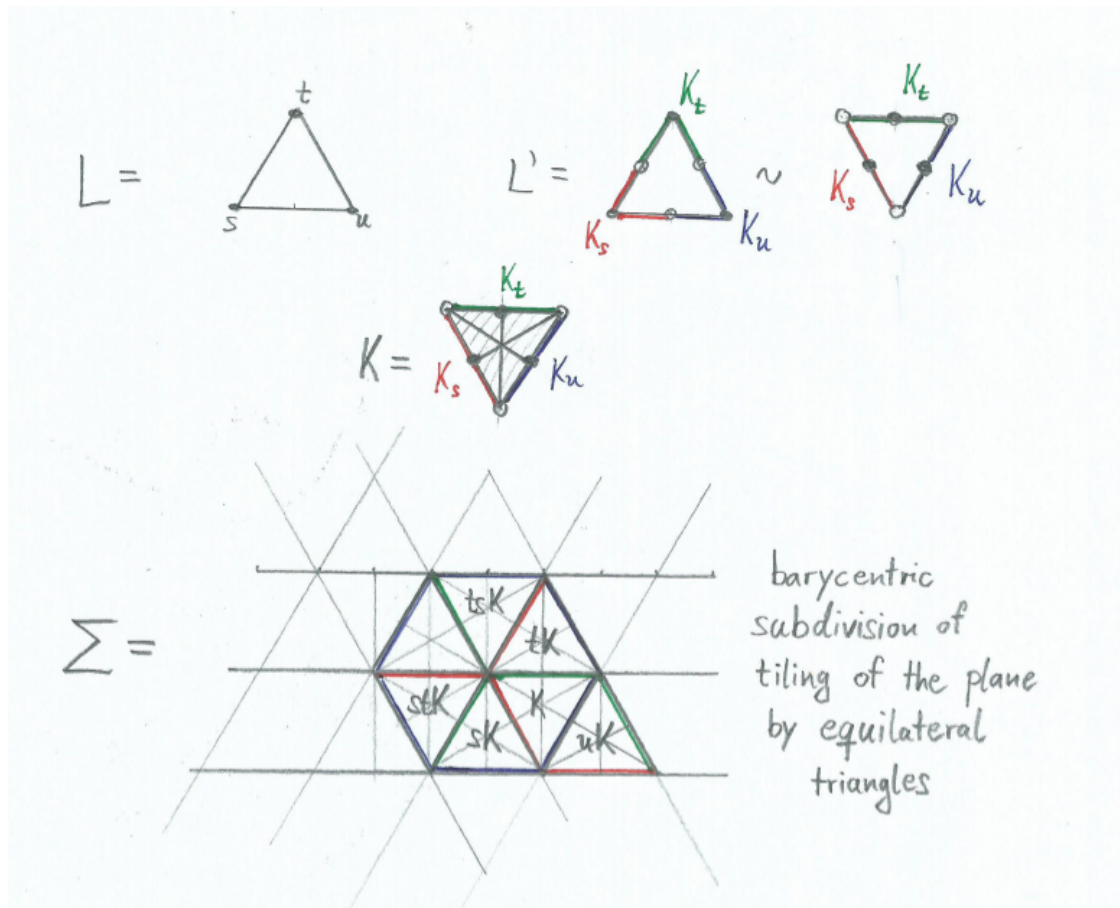 t
L =
s
u
L' =
K_t
K_s
K_u
~
K_t
K_s
K_u
K_t
K =
K_s
K_u
Σ =
tsK
tK
stK
K
sK
uK
barycentric
subdivision of
tiling of the plane
by equilateral
triangles